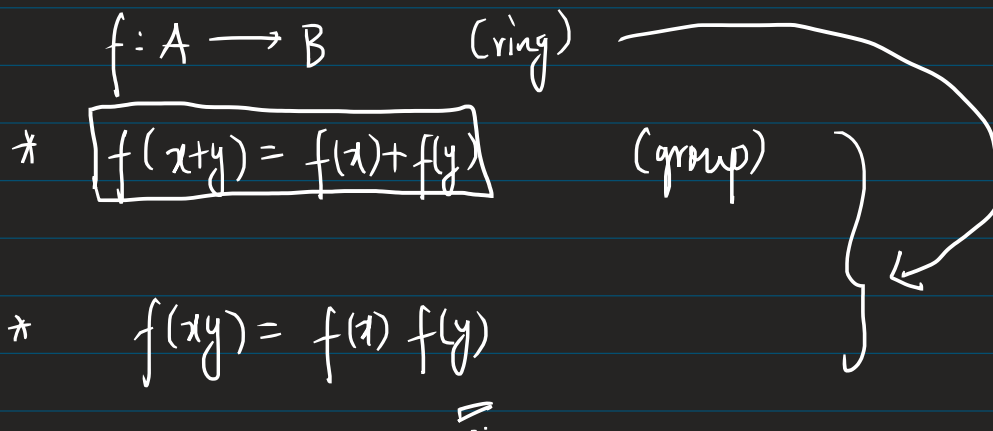 f : A ⟶ B (ring)
* f(x+y) = f(x)+f(y) (group)
* f(xy) = f(x) f(y)